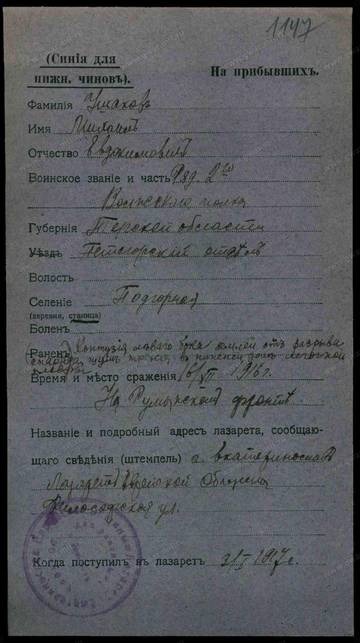 1147
(Синія для
нижн. чиновъ).
На прибывшихъ.
Фамилія Ушаковъ
Имя Михаилъ
Отчество Евдокимовичъ
Воинское званіе и часть Ряд. 2го
Волжскаго полка
Губернія Терской области
Уѣздъ Пятигорский отдѣлъ
Волость
Селеніе Подгорная
(деревня, станица)
Боленъ
Раненъ Контузія лѣваго бока
Время и мѣсто сраженія 1916 г.
На Румынскомъ фронтѣ
Названіе и подробный адресъ лазарета, сообщаю-
щаго свѣдѣнія (штемпель) г. Екатеринославъ
Лазаретъ Еврейской Общины
Философская ул.
Когда поступилъ въ лазаретъ 31/I 1917 г.